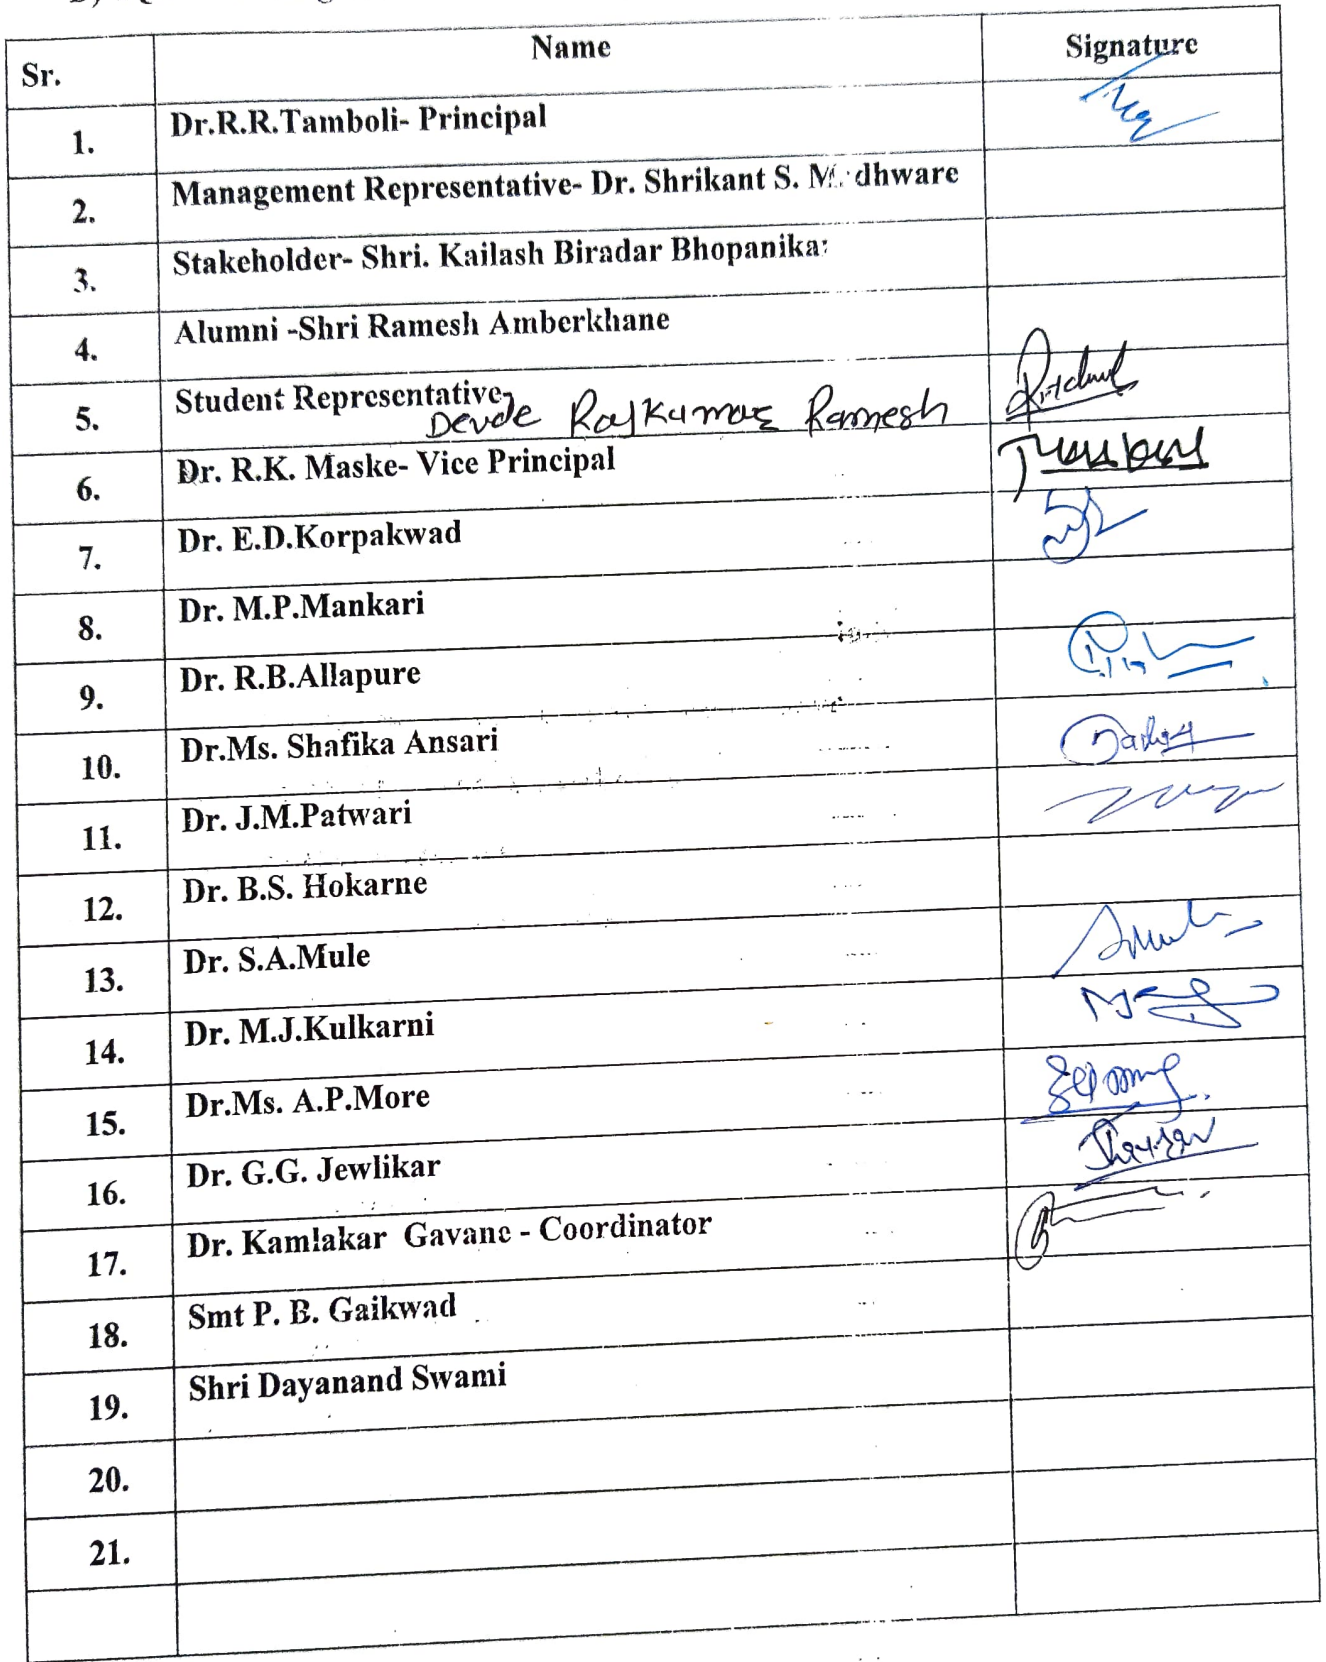 Sr. Name Signature
1. Dr.R.R.Tamboli- Principal
2. Management Representative- Dr. Shrikant S. M dhware
3. Stakeholder- Shri. Kailash Biradar Bhopanika
4. Alumni -Shri Ramesh Amberkhane
5. Student Representative-
Devde Rajkumar Ramesh
6. Dr. R.K. Maske- Vice Principal
7. Dr. E.D.Korpakwad
8. Dr. M.P.Mankari
9. Dr. R.B.Allapure
10. Dr.Ms. Shafika Ansari
11. Dr. J.M.Patwari
12. Dr. B.S. Hokarne
13. Dr. S.A.Mule
14. Dr. M.J.Kulkarni
15. Dr.Ms. A.P.More
16. Dr. G.G. Jewlikar
17. Dr. Kamlakar Gavane - Coordinator
18. Smt P. B. Gaikwad
19. Shri Dayanand Swami
20.
21.